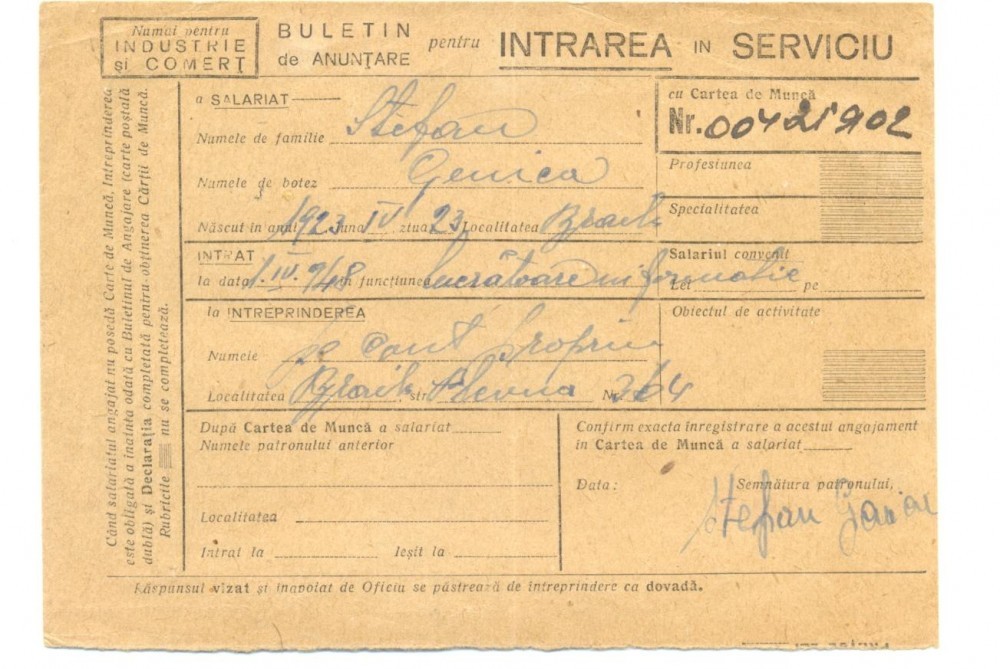 Numai pentru
INDUSTRIE
și COMERȚ
BULETIN
de ANUNȚARE
pentru
INTRAREA IN SERVICIU
Când salariatul angajat nu posedă Carte de Muncă, Intreprinderea
este obligată a înainta odată cu Buletinul de Angajare (carte poștală
dublă) și Declarația completată pentru obținerea Cărții de Muncă.
Rubricile nu se completează.
a SALARIAT
cu Cartea de Muncă
Nr. 00421902
Numele de familie Stefan
Profesiunea
Numele de botez Genica
Specialitatea
Născut in anul 1923 luna IV ziua 23 Localitatea Braila
INTRAT
Salariul convenit
la data 1. IV. 948 in funcțiunea lucrătoare
Lei pe
la INTREPRINDEREA
Obiectul de activitate
Numele pe cont propriu
Localitatea Braila str. Plevna Nr. 264
După Cartea de Muncă a salariat
Numele patronului anterior
Localitatea
Intrat la Ieșit la
Confirm exacta înregistrare a acestui angajament
in Cartea de Muncă a salariat
Data: Semnătura patronului,
Stefan
Răspunsul vizat și inapoiat de Oficiu se păstrează de întreprindere ca dovadă.